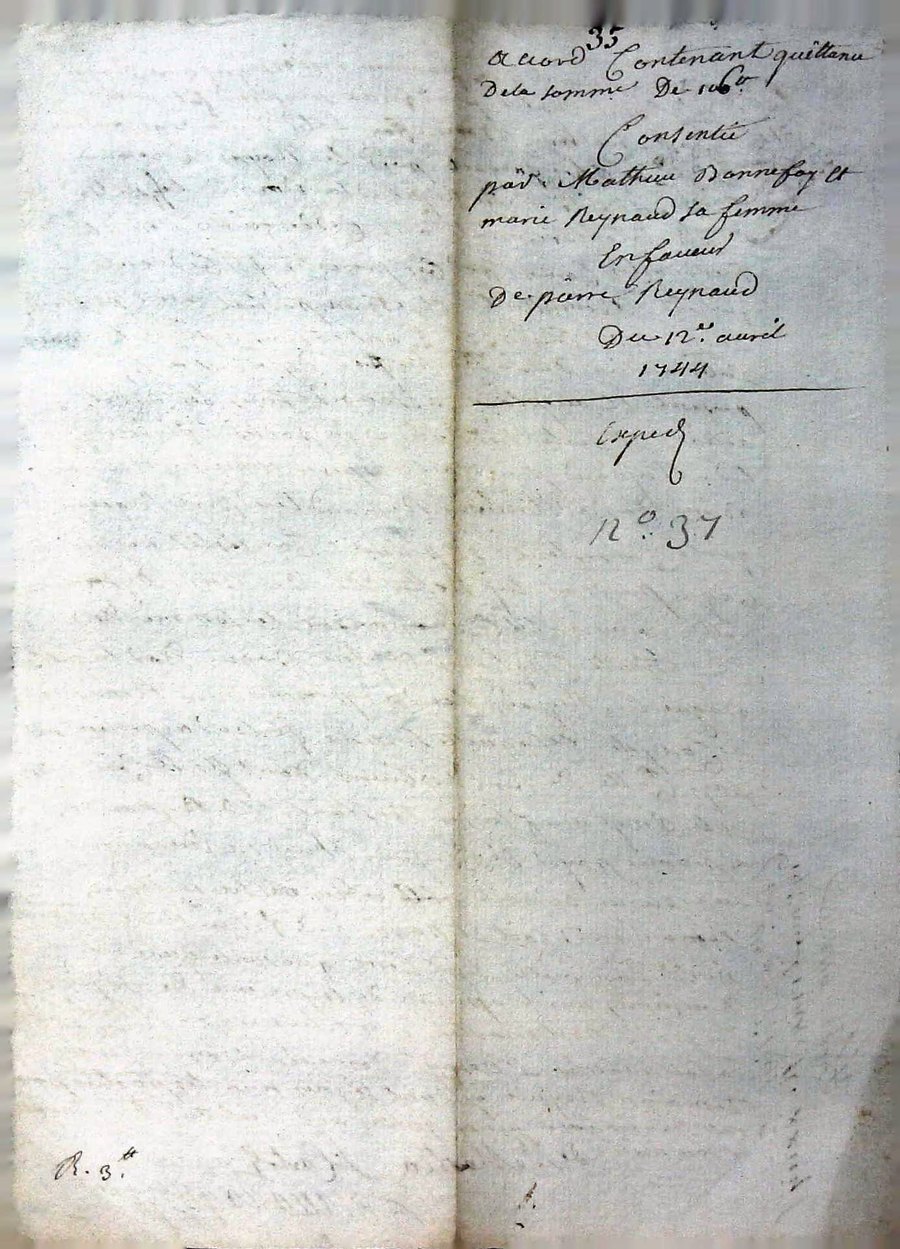 35
accord Contenant quittance
De la somme De 106ᵗᵗ
Consentie
par Mathieu Bonnefoy et
marie Reynaud sa femme
En faveur
De pierre Reynaud
Du 12ᵉ avril
1744
Exped
N° 37
R. 3ᵗᵗ